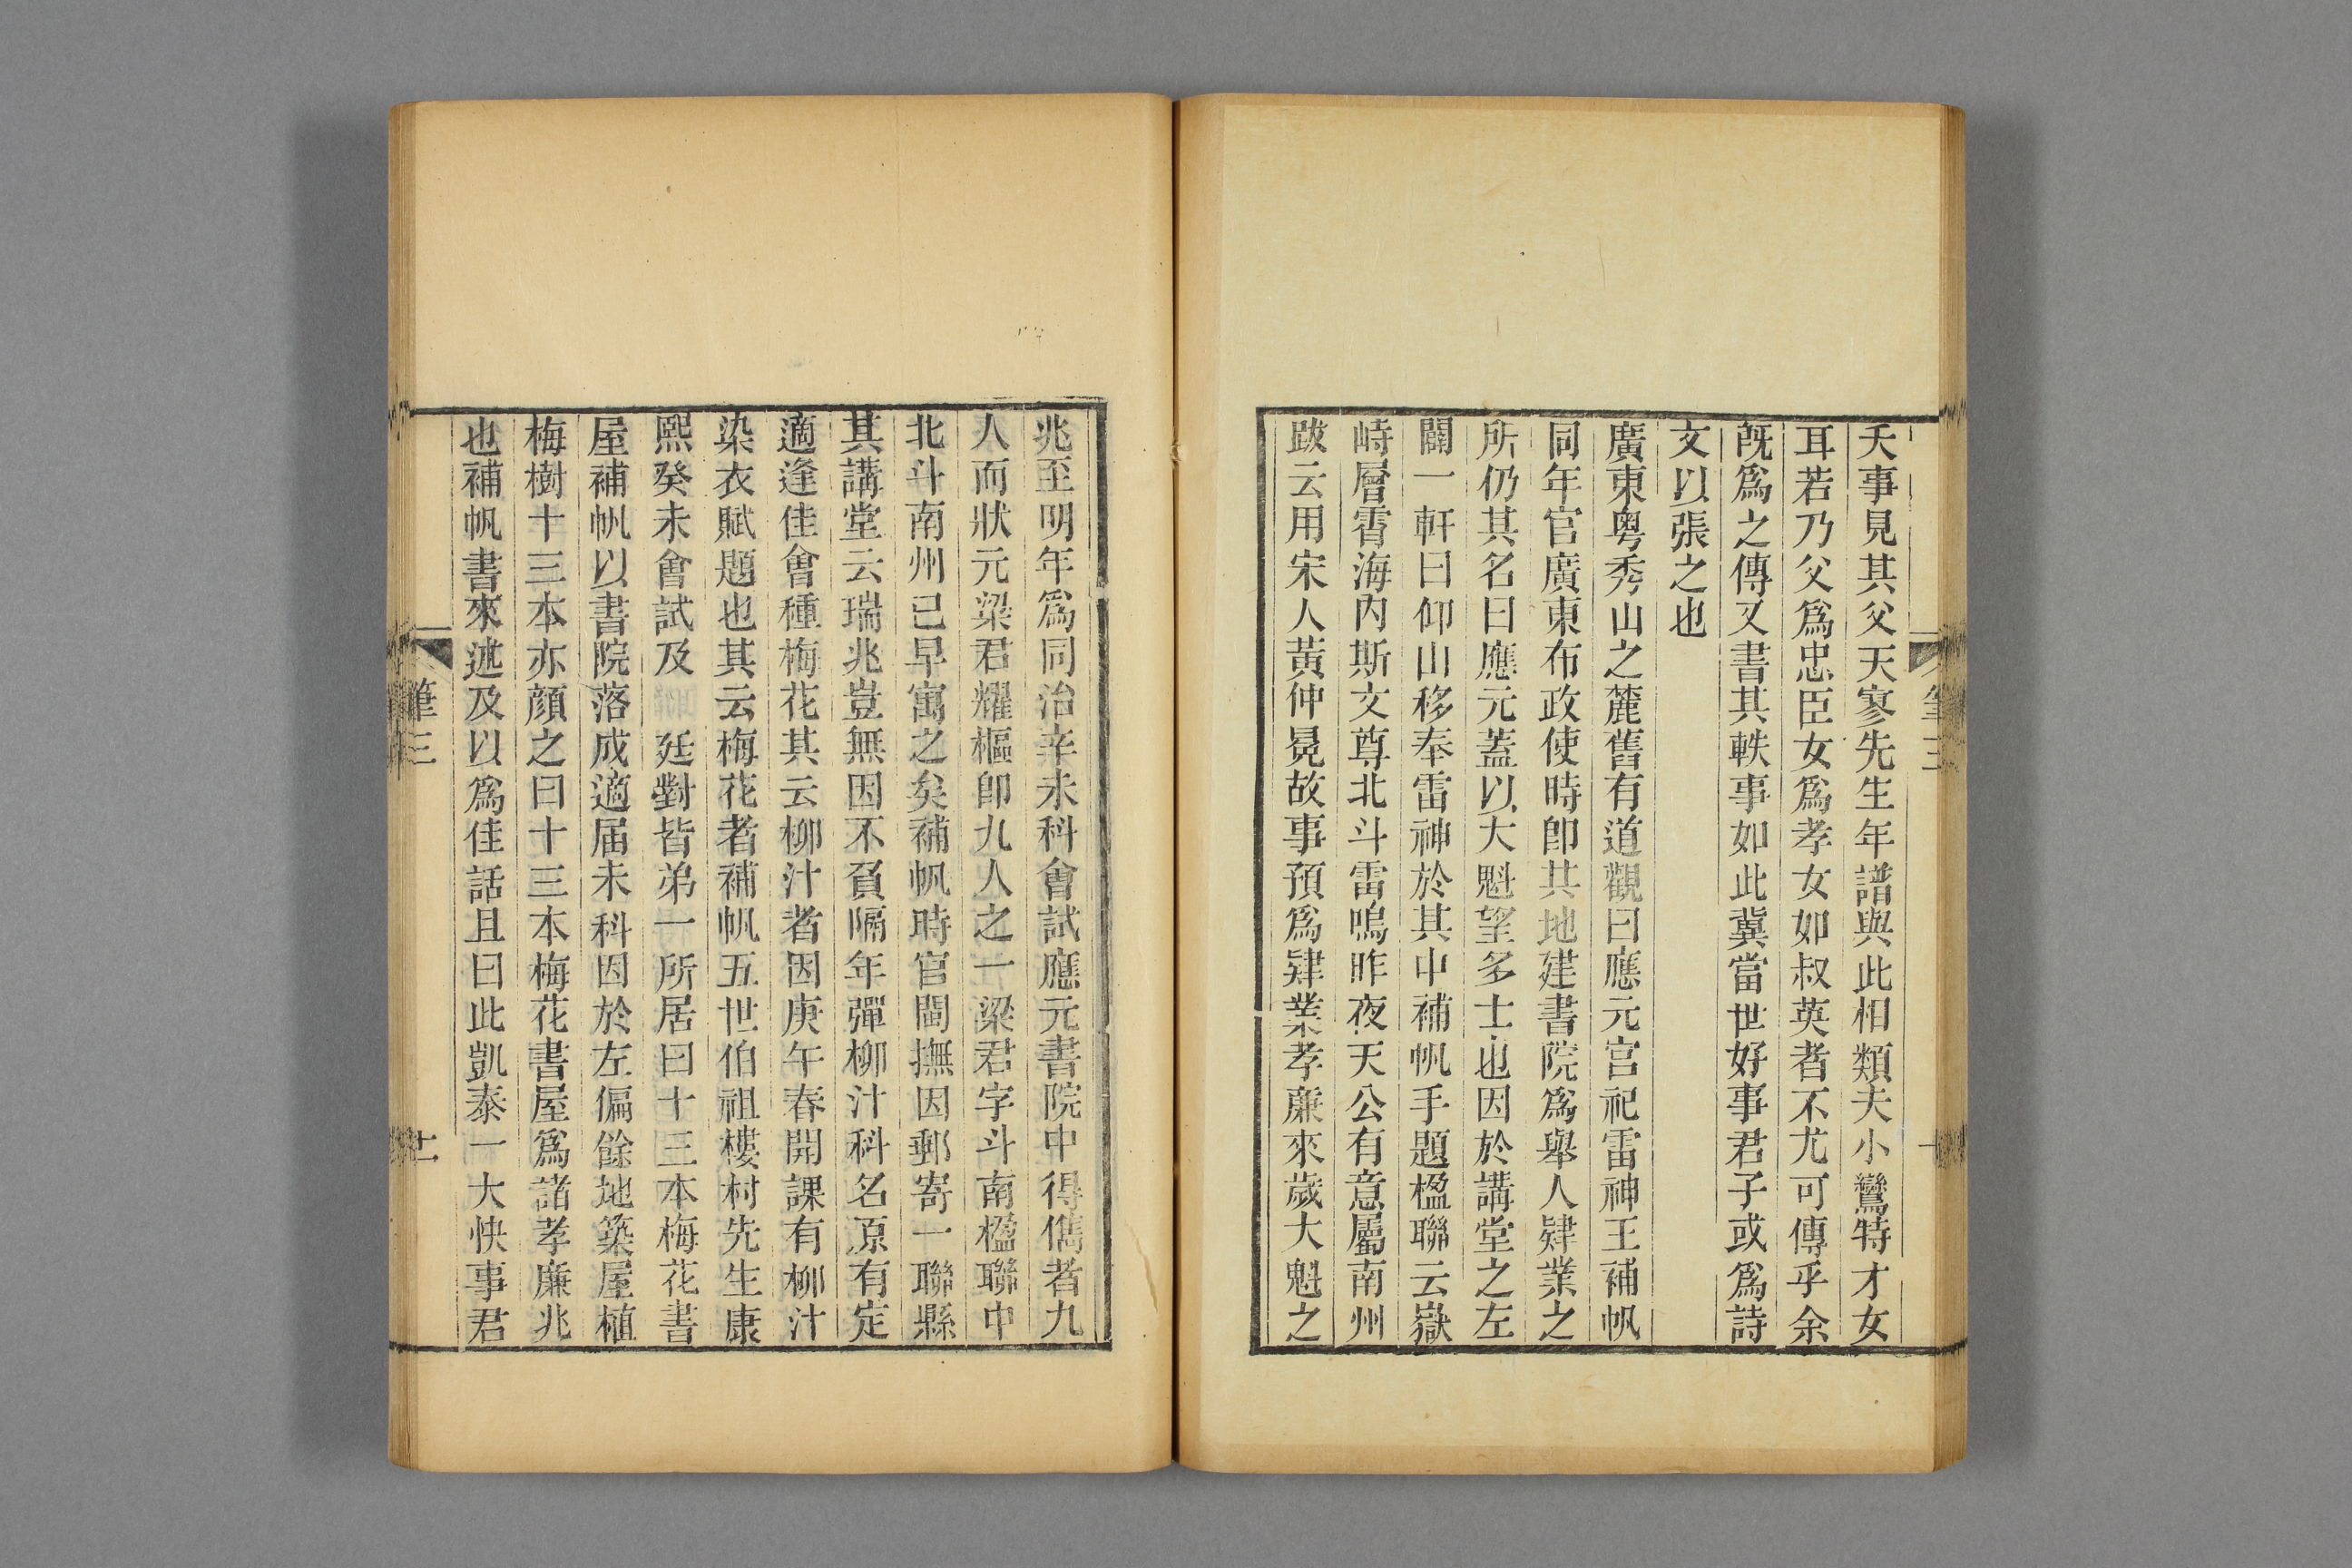 夭事見其父天寥先生年譜與此相類夫小鸞特才女
耳若乃父爲忠臣女爲孝女如叔英者不尤可傳乎余
旣爲之傳又書其軼事如此冀當世好事君子或爲詩
文以張之也
廣東粤秀山之麓舊有道觀曰應元宮祀雷神王補帆
同年官廣東布政使時卽其地建書院爲舉人肄業之
所仍其名曰應元蓋以大魁望多士也因於講堂之左
闢一軒曰仰山移奉雷神於其中補帆手題楹聯云嶽
峙層霄海内斯文尊北斗雷鳴昨夜天公有意屬南州
跋云用宋人黃仲晃故事預爲肄業孝廉來歲大魁之
筆三
十
兆至明年爲同治辛未科會試應元書院中得儁者九
人而狀元梁君耀樞卽九人之一梁君字斗南楹聯中
北斗南州已早寓之矣補帆時官閩撫因郵寄一聯縣
其講堂云瑞兆豈無因不負隔年彈柳汁科名原有定
適逢佳會種梅花其云柳汁者因庚午春開課有柳汁
染衣賦題也其云梅花者補帆五世伯祖樓村先生康
熙癸未會試及 廷對皆弟一所居曰十三本梅花書
屋補帆以書院落成適届未科因於左偏餘地築屋植
梅樹十三本亦顏之曰十三本梅花書屋爲諸孝廉兆
也補帆書來述及以爲佳話且曰此凱泰一大快事君
筆三
十一